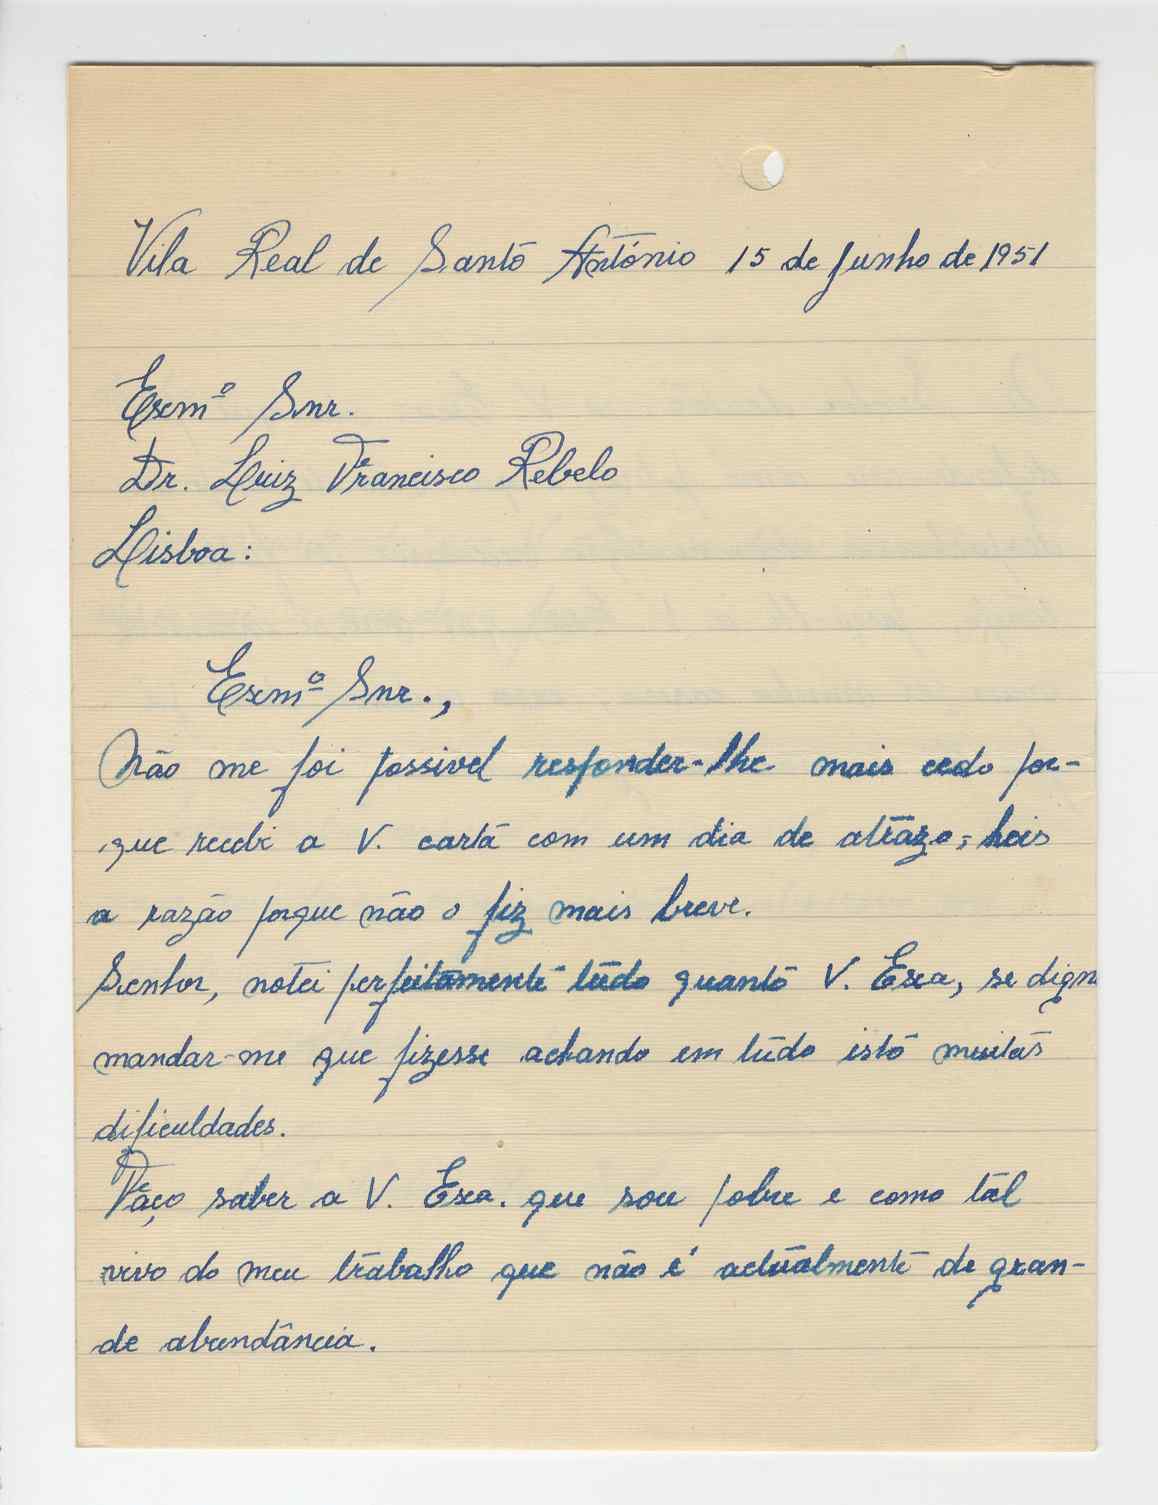 Vila Real de Santo António 15 de Junho de 1951
Exmº Snr.
Dr. Luiz Francisco Rebelo
Lisboa:
Exmº Snr.,
Não me foi possivel responder-lhe mais cedo por-
que recebi a V. carta com um dia de atrazo; heis
a razão porque não o fiz mais breve.
Senhor, notei perfeitamente tudo quanto V. Exa, se dign
mandar-me que fizesse achando em tudo isto muitas
dificuldades.
Faço saber a V. Exa. que sou pobre e como tal
vivo do meu trabalho que não é actualmente de gran-
de abundância.